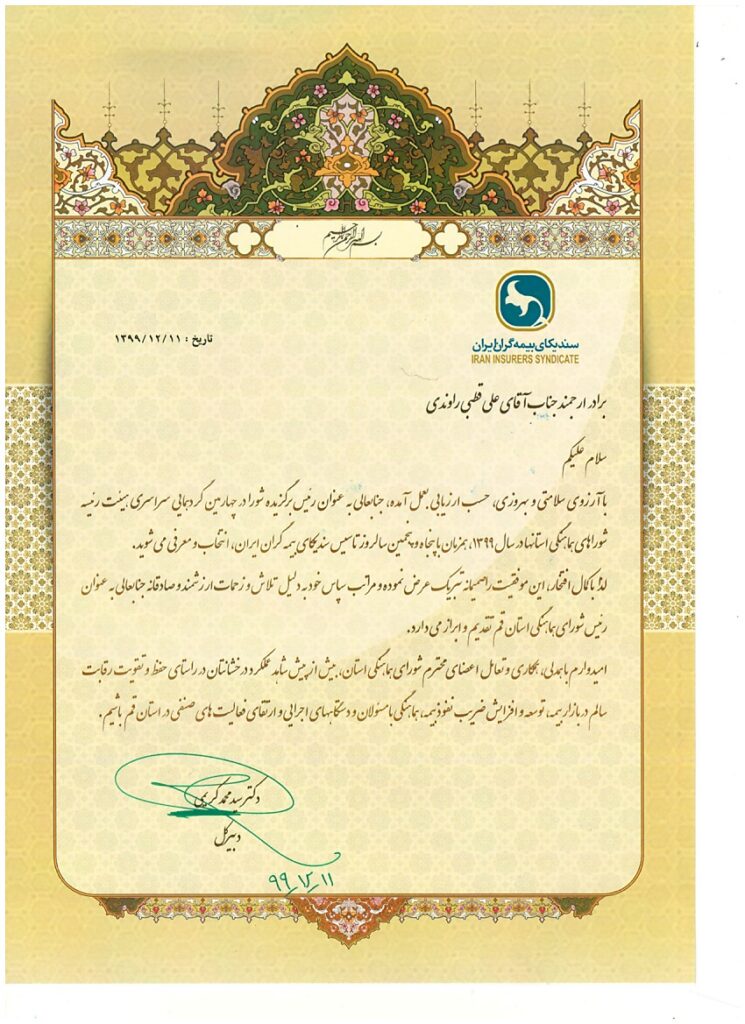 بسم الله الرحمن الرحیم
سندیکای بیمه گران ایران
IRAN INSURERS SYNDICATE
تاریخ : ۱۳۹۹/۱۲/۱۱
برادر ارجمند جناب آقای علی قطبی راوندی
سلام علیکم
با آرزوی سلامتی و بهروزی، حسب ارزیابی بعمل آمده، جنابعالی به عنوان رئیس برگزیده شورا در چهارمین گردهمایی سراسری هیئت رئیسه
شوراهای هماهنگی استانها در سال ۱۳۹۹، همزمان با پنجاه و پنجمین سالروز تاسیس سندیکای بیمه گران ایران، انتخاب و معرفی می شوید.
لذا با کمال افتخار، این موفقیت را صمیمانه تبریک عرض نموده و مراتب سپاس خود به دلیل تلاش و زحمات ارزشمند و صادقانه جنابعالی به عنوان
رئیس شورای هماهنگی استان قم تقدیم و ابراز می دارد.
امیدوارم با همدلی، همکاری و تعامل اعضای محترم شورای هماهنگی استان، بیش از پیش شاهد عملکرد درخشانتان در راستای حفظ و تقویت رقابت
سالم در بازار بیمه، توسعه و افزایش ضریب نفوذ بیمه، هماهنگی با مسئولان و دستگاههای اجرایی و ارتقای فعالیت های صنفی در استان قم باشیم.
دکتر سید محمد کریمی
دبیرکل
۹۹_۱۲_۱۱